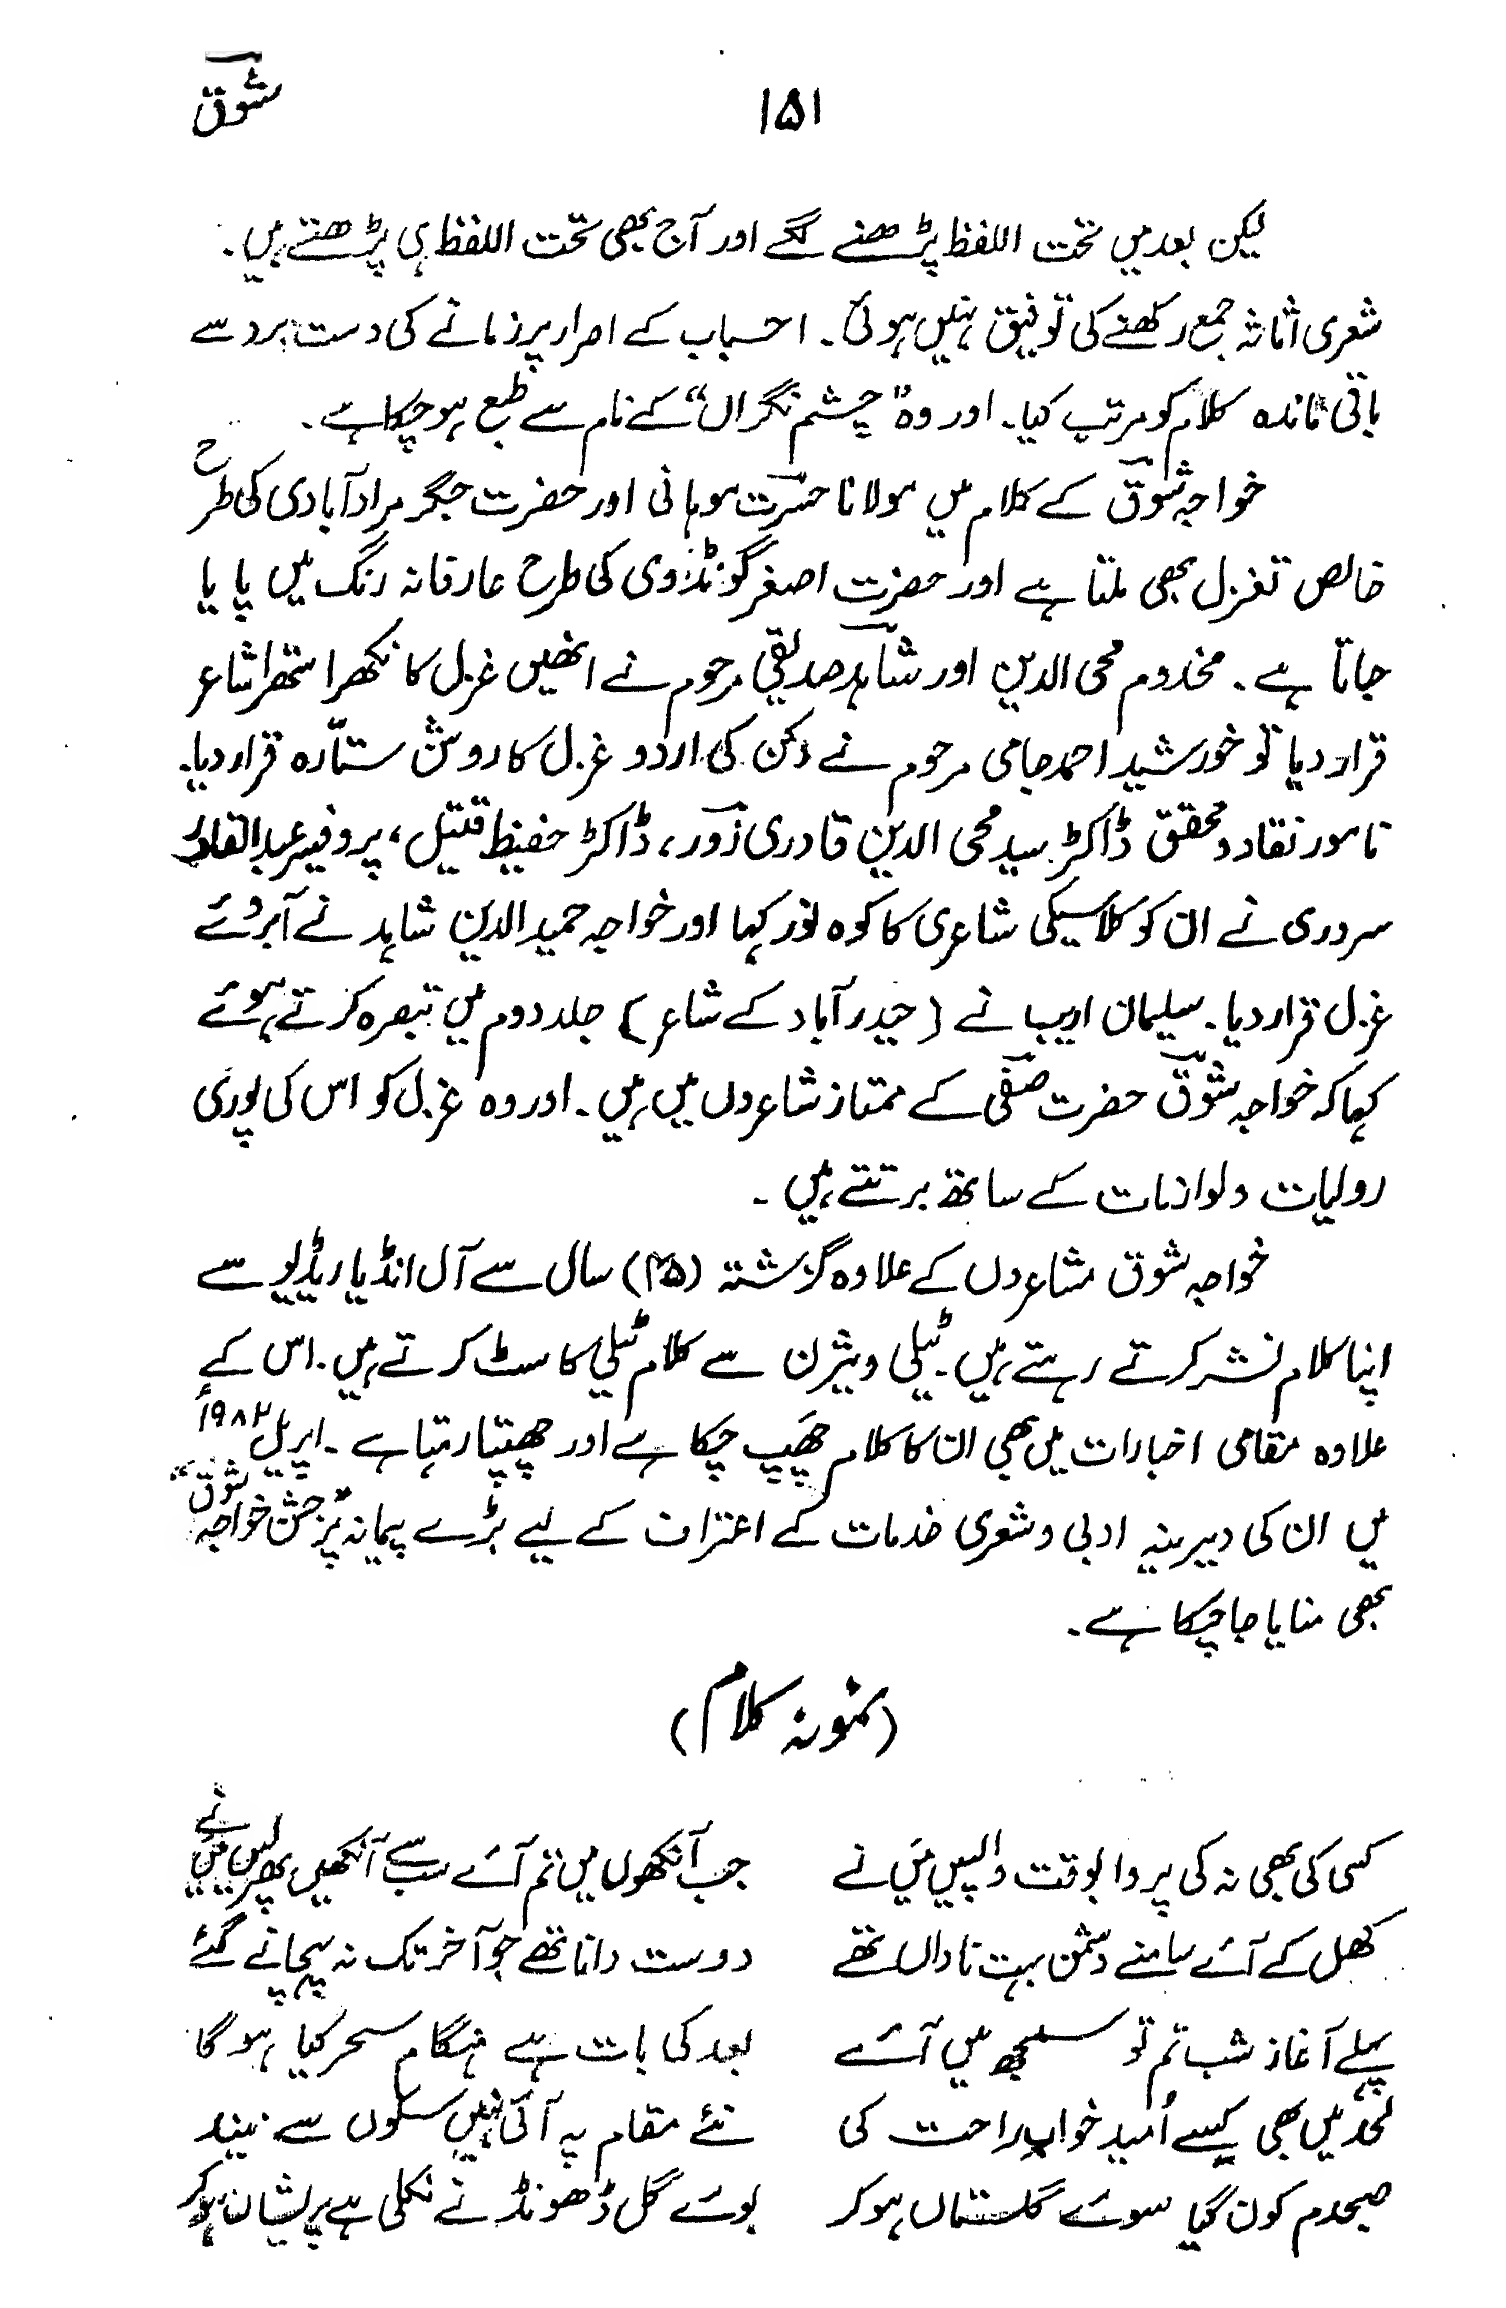 شوقؔ
۱۵۱
لیکن بعد میں تحت اللفظ پڑھنے لگے اور آج بھی تحت اللفظ ہی پڑھتے ہیں۔
شعری اثاثہ جمع رکھنے کی توفیق نہیں ہوئی۔ احباب کے اصرار پر زمانے کی دست برد سے
باقی ماندہ کلام کو مرتب کیا۔ اور وہ "چشم نگراں" کے نام سے طبع ہو چکا ہے۔
خواجہ شوقؔ کے کلام میں مولانا حسرتؔ موہانی اور حضرت جگر مرادآبادی کی طرح
خالص تغزل بھی ملتا ہے اور حضرت اصغر گونڈوی کی طرح عارفانہ رنگ میں پایا
جاتا ہے۔ مخدوم محی الدین اور شاہدؔ صدیقی مرحوم نے انھیں غزل کا نکھرا ستھرا شاعر
قرار دیا تو خورشید احمد جامی مرحوم نے دکن کی اردو غزل کا روشن ستّارہ قرار دیا۔
نامور نقاد و محقق ڈاکٹر سید محی الدین قادری زورؔ، ڈاکٹر حفیظ قتیل، پروفیسر عبدالقادر
سروری نے ان کو کلاسیکی شاعری کا کوہ نور کہا اور خواجہ حمید الدین شاہد نے آبروئے
غزل قرار دیا۔ سلیمان اریب نے (حیدرآباد کے شاعر) جلد دوم میں تبصرہ کرتے ہوئے
کہا کہ خواجہ شوقؔ حضرت صفیؔ کے ممتاز شاعروں میں ہیں۔ اور وہ غزل کو اس کی پوری
روایات و لوازمات کے ساتھ برتتے ہیں۔
خواجہ شوق مشاعروں کے علاوہ گزشتہ (۴۵) سال سے آل انڈیا ریڈیو سے
اپنا کلام نشر کرتے رہتے ہیں۔ ٹیلی ویژن سے کلام ٹیلی کاسٹ کرتے ہیں۔ اس کے
علاوہ مقامی اخبارات میں بھی ان کا کلام چھپ چکا ہے اور چھپتا رہتا ہے۔ اپریل ۱۹۸۲ء
میں ان کی دیرینہ ادبی و شعری خدمات کے اعتراف کے لیے بڑے پیمانہ پر "جشن خواجہ شوق"
بھی منایا جا چکا ہے۔
(نمونہ کلام)
کسی کی بھی نہ کی پروا بوقت واپسیں میں نے جب آنکھوں میں تم آئے سب سے آنکھیں پھیر لیں میں نے
کھل کے آئے سامنے دشمن بہت ناداں تھے دوست دانا تھے جو آخر تک نہ پہچانے گئے
پہلے آغاز شب تم تو سمجھ میں آئے بعد کی بات ہے ہنگام سحر کیا ہوگا
لحد میں بھی کیسے اُمید خواب راحت کی نئے مقام پہ آتی نہیں سکوں سے نیند
صبحدم کون گیا سوئے گلستاں ہو کر بوئے گل ڈھونڈنے نکلی ہے پریشاں ہو کر